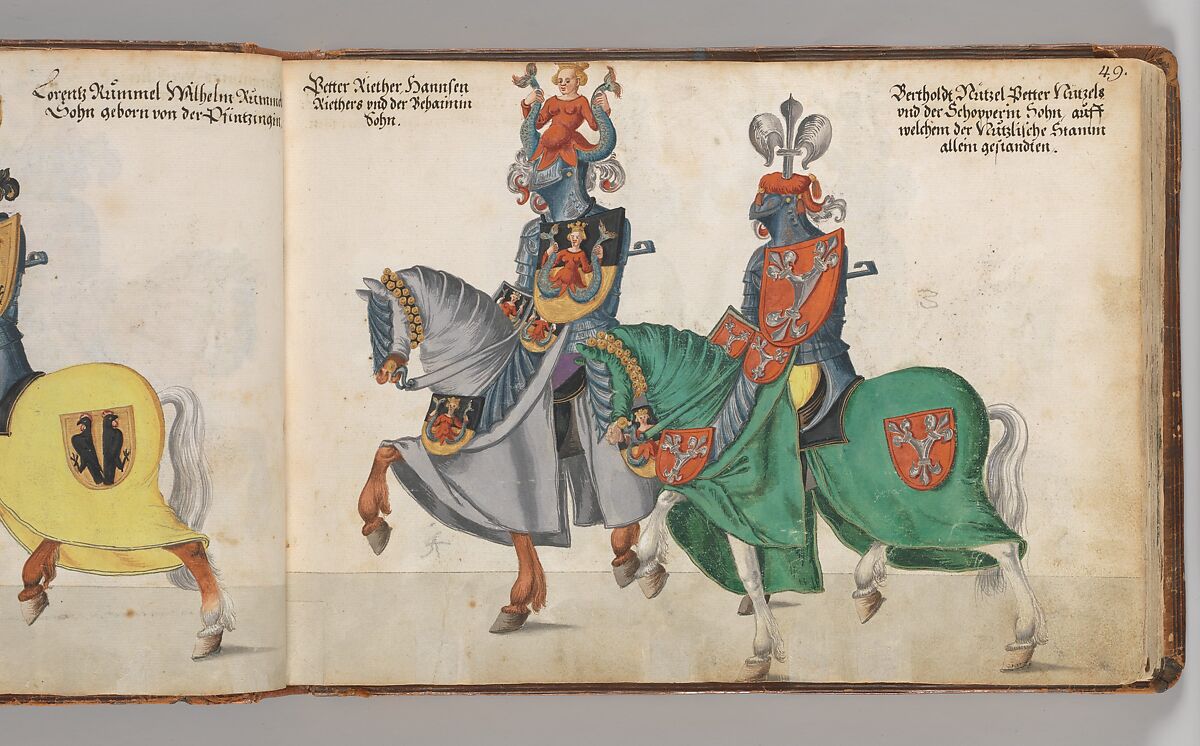 Lorentz Rümmel Wilhelm Rümmel
Sohn geborn von der Pfintzingin
Petter Riether Hannsen
Riethers vnd der Behaimin
Sohn.
49.
Bertholdt Nützel Petter Nützels
vnd der Schopperin Sohn, auff
welchem der Nützlische Stamm
allein gestandten.